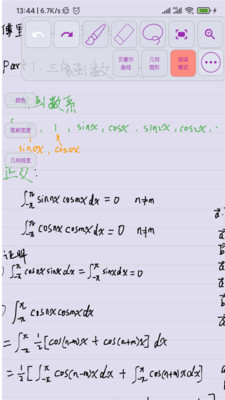 13:44 | 6.7K/s
阅读
模式
贝塞尔
曲线
几何
图形
Part 1. 三角函数
颜色
函数系
笔刷宽度
1, sinx, cosx, sin2x, cos2x, ·
sin0x, cos0x
几何线宽
正交:
∫_{-π}^{π} sin nx cos mx dx = 0 n≠m
∫_{-π}^{π} cos nx cos mx dx = 0 n≠m
证明
∫_{-π}^{π} cos0x sinx dx = ∫_{-π}^{π} sinx dx = 0
∫_{-π}^{π} cos nx cos mx dx
= ∫_{-π}^{π} 1/2 [cos(n-m)x + cos(n+m)x] dx
= 1/2 [∫_{-π}^{π} cos(n-m)x dx + ∫_{-π}^{π} cos(n+m)x dx]